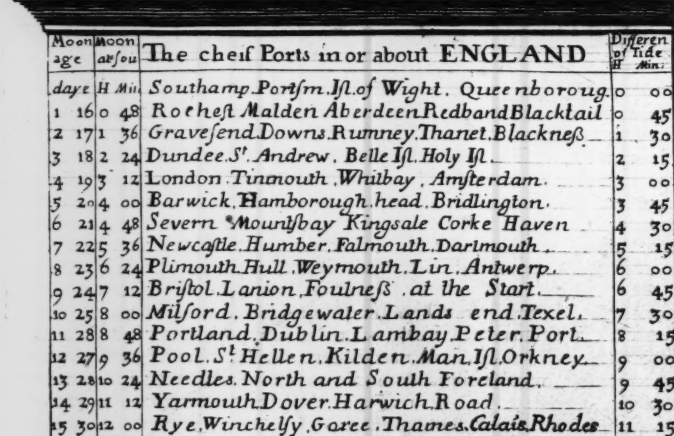 Moon age Moon at sou The cheif Ports in or about ENGLAND Differen of Tide H Min:
daye H Min Southamp.Portſm.Iſl.of Wight, Queenboroug. 0 00
1 16 0 48 Rocheſt Malden Aberdeen Redband Blacktail 0 45
2 17 1 36 Graveſend.Downs.Rumney.Thanet.Blackneß 1 30
3 18 2 24 Dundee.St. Andrew, Belle Iſl.Holy Iſl. 2 15
4 19 3 12 London.Tinmouth.Whilbay, Amſterdam. 3 00
5 20 4 00 Barwick, Hamborough.head, Bridlington. 3 45
6 21 4 48 Severn Mountſbay Kingsale Corke Haven 4 30
7 22 5 36 Newcaſtle.Humber.Falmouth.Dartmouth. 5 15
8 23 6 24 Plimouth.Hull.Weymouth.Lin.Antwerp. 6 00
9 24 7 12 Briſtol.Lanion.Foulneß.at the Start. 6 45
10 25 8 00 Milford.Bridgewater.Lands end.Texel. 7 30
11 28 8 48 Portland.Dublin.Lambay.Peter.Port. 8 15
12 27 9 36 Pool.St.Hellen.Kilden.Man.Iſl.Orkney 9 00
13 28 10 24 Needles.North and South Foreland. 9 45
14 29 11 12 Yarmouth.Dover.Harwich.Road. 10 30
15 30 12 00 Rye,Winchelſy,Goree.Thames.Calais,Rhodes 11 15